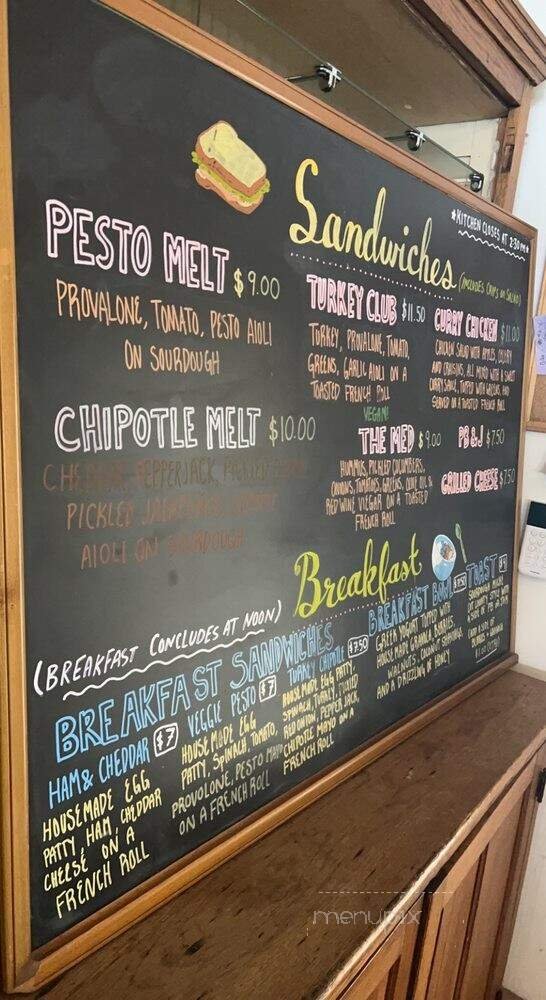 Sandwiches
(INCLUDES CHIPS OR SALAD)
*KITCHEN CLOSES AT 2:30 PM*
PESTO MELT $9.00
PROVALONE, TOMATO, PESTO AIOLI
ON SOURDOUGH
CHIPOTLE MELT $10.00
CHEDDAR, PEPPERJACK,
PICKLED
AIOLI ON SOURDOUGH
TURKEY CLUB $11.50
TURKEY, PROVALONE, TOMATO,
GREENS, GARLIC AIOLI ON A
TOASTED FRENCH ROLL
CURRY CHICKEN $11.00
CHICKEN SALAD WITH APPLES, CELERY
AND CRAISINS, ALL MIXED WITH A SWEET
CURRY SAUCE, TOPPED WITH GREENS, AND
SERVED ON A TOASTED FRENCH ROLL
VEGAN!
THE MED $9.00
HUMMUS, PICKLED CUCUMBERS,
ONIONS, TOMATOES, GREENS, OLIVE OIL &
RED WINE VINEGAR ON A TOASTED
FRENCH ROLL
PB&J $7.50
GRILLED CHEESE $7.50
Breakfast
(BREAKFAST CONCLUDES AT NOON)
BREAKFAST SANDWICHES
HAM & CHEDDAR $7
HOUSEMADE EGG
PATTY, HAM, CHEDDAR
CHEESE ON A
FRENCH ROLL
VEGGIE PESTO $7
HOUSEMADE EGG
PATTY, SPINACH, TOMATO,
PROVOLONE, PESTO MAYO
ON A FRENCH ROLL
TURKEY CHIPOTLE $7.50
HOUSEMADE EGG PATTY,
SPINACH, TURKEY,
RED ONION, PEPPER JACK,
CHIPOTLE MAYO ON A
FRENCH ROLL
BREAKFAST BOWL
GREEK YOGURT TOPPED WITH
HOUSE MADE GRANOLA, BERRIES,
WALNUTS, COCONUT SHAVINGS
AND A DRIZZLING OF HONEY
TOAST $4
menupix